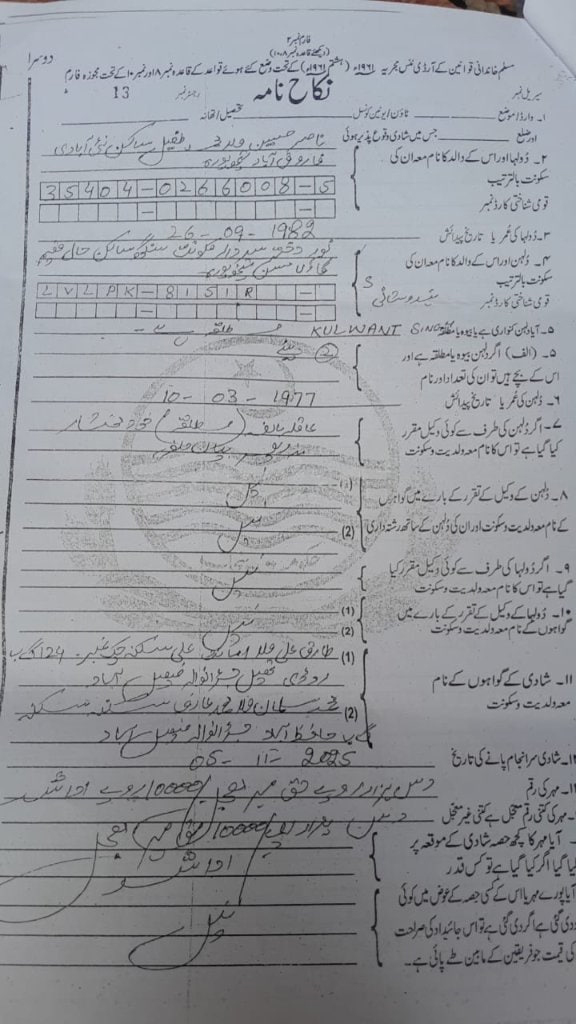 فارم نمبر ۲
(دیکھئے قاعدہ نمبر ۸-۱۰)
دوسرا
مسلم خاندانی قوانین کے آرڈی ننس مجریہ ۱۹۶۱ء (ہشتم ۱۹۶۱ء) کے تحت وضع کئے ہوئے قواعد کے قاعدہ نمبر ۸ اور نمبر ۱۰ کے تحت مجوزہ فارم
سیریل نمبر نکاح نامہ رجسٹر نمبر 13
۱۔ وارڈ/موضع ٹاؤن/یونین کونسل تحصیل/تھانہ
اور ضلع جس میں شادی وقوع پذیر ہوئی
۲۔ دُولہا اور اس کے والد کا نام معہ ان کی ناصر حسین ولد طفیل ساکن نئی آبادی
سکونت بالترتیب فاروق آباد شیخوپورہ
قومی شناختی کارڈ نمبر 35404-0266008-5
۳۔ دُولہا کی عمر یا تاریخ پیدائش 26-09-1982
۴۔ دُلہن اور اس کے والد کا نام معہ ان کی نور سنگھ ساکن حال مقیم
سکونت بالترتیب شیخوپورہ
قومی شناختی کارڈ نمبر LVLPK-8151R
۵۔ آیا دُلہن کنواری ہے یا بیوہ یا مطلقہ KULWANT SINGH مطلقہ ہے
۵۔ (الف) اگر دُلہن بیوہ یا مطلقہ ہے اور ②
اس کے بچے ہیں تو ان کی تعداد اور نام
۶۔ دُلہن کی عمر یا تاریخ پیدائش 10-03-1977
۷۔ اگر دُلہن کی طرف سے کوئی وکیل مقرر عاقلہ بالغہ مطلقہ خود مختار
کیا گیا ہے تو اس کا نام معہ ولدیت و سکونت
۸۔ دُلہن کے وکیل کے تقرر کے بارے میں گواہوں (1)
کے نام معہ ولدیت و سکونت اور ان کی دُلہن کے ساتھ رشتہ داری (2)
۹۔ اگر دُولہا کی طرف سے کوئی وکیل مقرر کیا
گیا ہے تو اس کا نام معہ ولدیت و سکونت
۱۰۔ دُولہا کے وکیل کے تقرر کے بارے میں (1)
گواہوں کے نام معہ ولدیت و سکونت (2)
۱۱۔ شادی کے گواہوں کے نام (1) طارق علی ولد علی سکنہ چک نمبر 124 گ ب
معہ ولدیت و سکونت تحصیل جڑانوالہ فیصل آباد
(2) محمد سلمان ولد محمد سکنہ
جڑانوالہ فیصل آباد
۱۲۔ شادی سرانجام پانے کی تاریخ 05-11-2025
۱۳۔ مہر کی رقم دس ہزار روپے حق مہر 10000/ روپے ادا شد
۔ مہر کی کتنی رقم معجل ہے کتنی غیر معجل دس ہزار روپے 10000/ حق مہر معجل
۔ آیا مہر کا کچھ حصہ شادی کے موقعہ پر ادا شد
کیا گیا اگر کیا گیا ہے تو کس قدر
آیا پورے مہر یا اس کے کسی حصہ کے عوض میں کوئی
دی گئی ہے اگر دی گئی ہے تو اس جائیداد کی صراحت
کی قیمت جو فریقین کے مابین طے پائی ہے۔